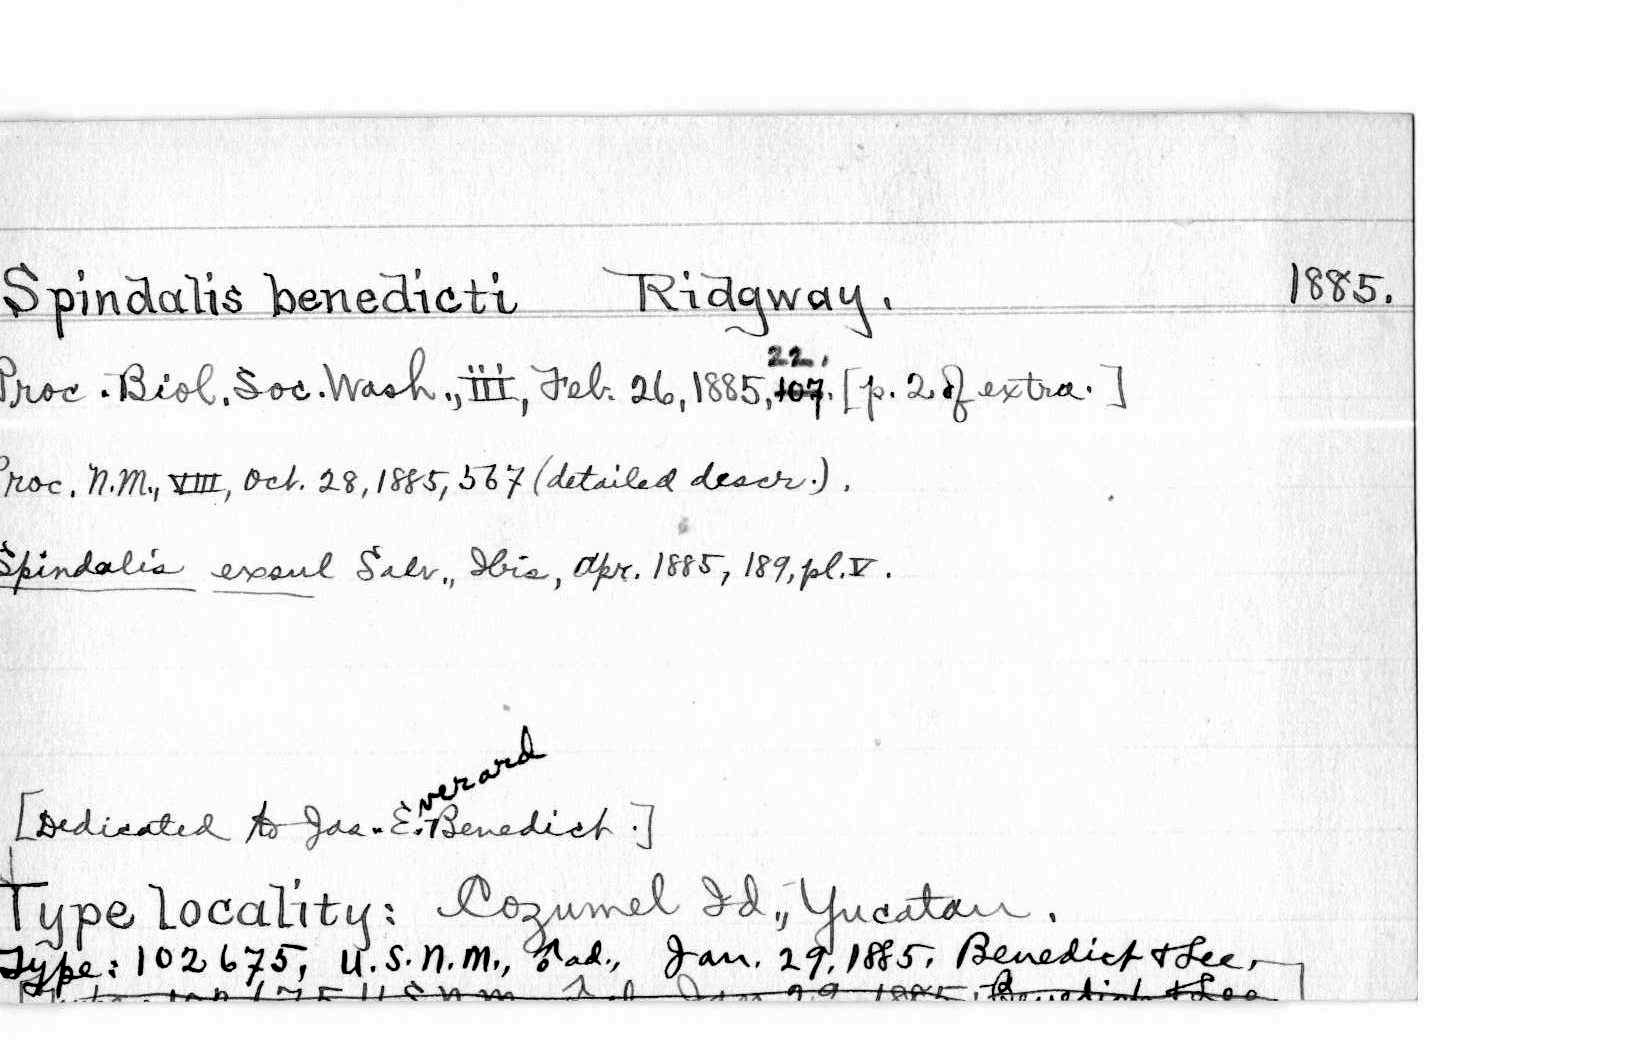 Spindalis benedicti Ridgway. 1885.
Proc. Biol. Soc. Wash., III, Feb. 26, 1885, 22, 107. [p. 2 of extra.]
Proc. N.M., VIII, Oct. 28, 1885, 567 (detailed descr.).
Spindalis exsul Salv., Ibis, Apr. 1885, 189, pl. V.
[Dedicated to Jas. Everard Benedict.]
Type locality: Cozumel Id., Yucatan.
Type: 102675, U.S.N.M., ♂ ad., Jan. 29, 1885. Benedict & Lee.
102675 U S N M Jan 29 1885. Benedict & Lee